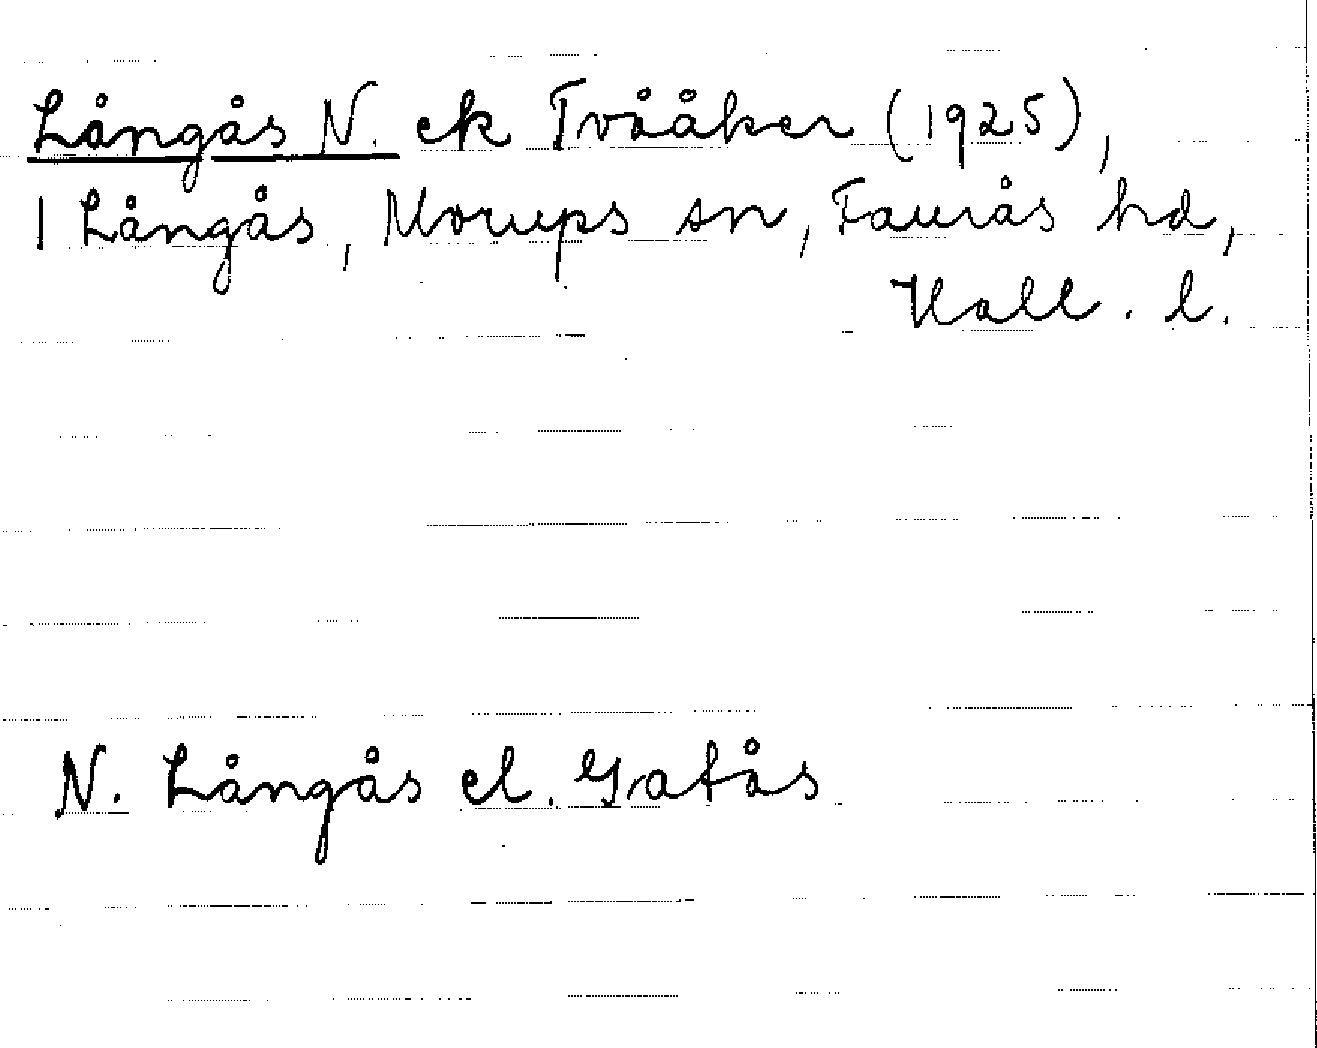 Långås N. ek Tvååker (1925),
1 Långås, Morups sn, Faurås hd,
Hall. l.
N. Långås el. Gatås